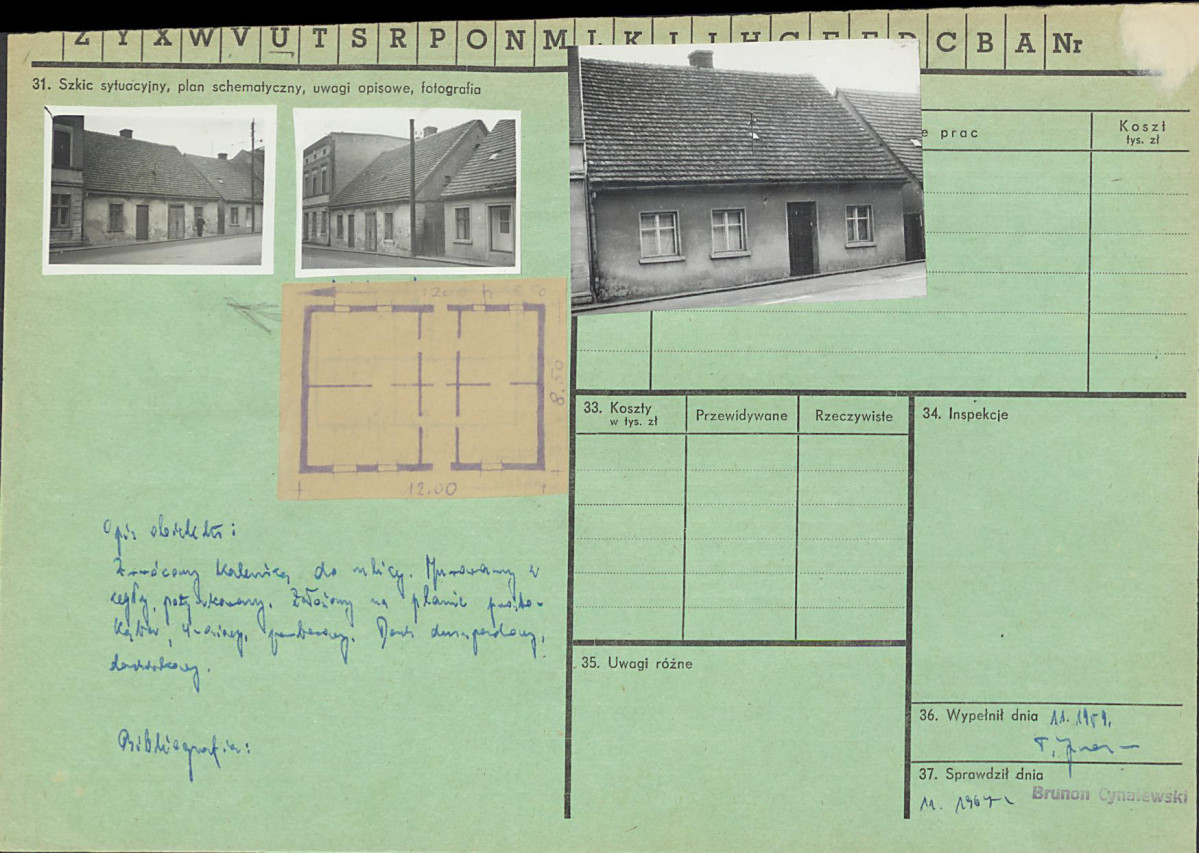 Z Y X W V U T S R P O N M L K J I H G F E D C B A Nr
31. Szkic sytuacyjny, plan schematyczny, uwagi opisowe, fotografia
e prac
Koszt
tys. zł
8.50
12.00
33. Koszty
w tys. zł
Przewidywane
Rzeczywiste
34. Inspekcje
Opis obiektu:
Zwrócony kalenicą do ulicy. Murowany z
cegły, potynkowany. Założony na planie prosto-
kąta, parterowy. Dach dwuspadowy,
dachówkowy.
Bibliografia:
35. Uwagi różne
36. Wypełnił dnia 11. 1959.
37. Sprawdził dnia
11.
Brunon Cynalewski